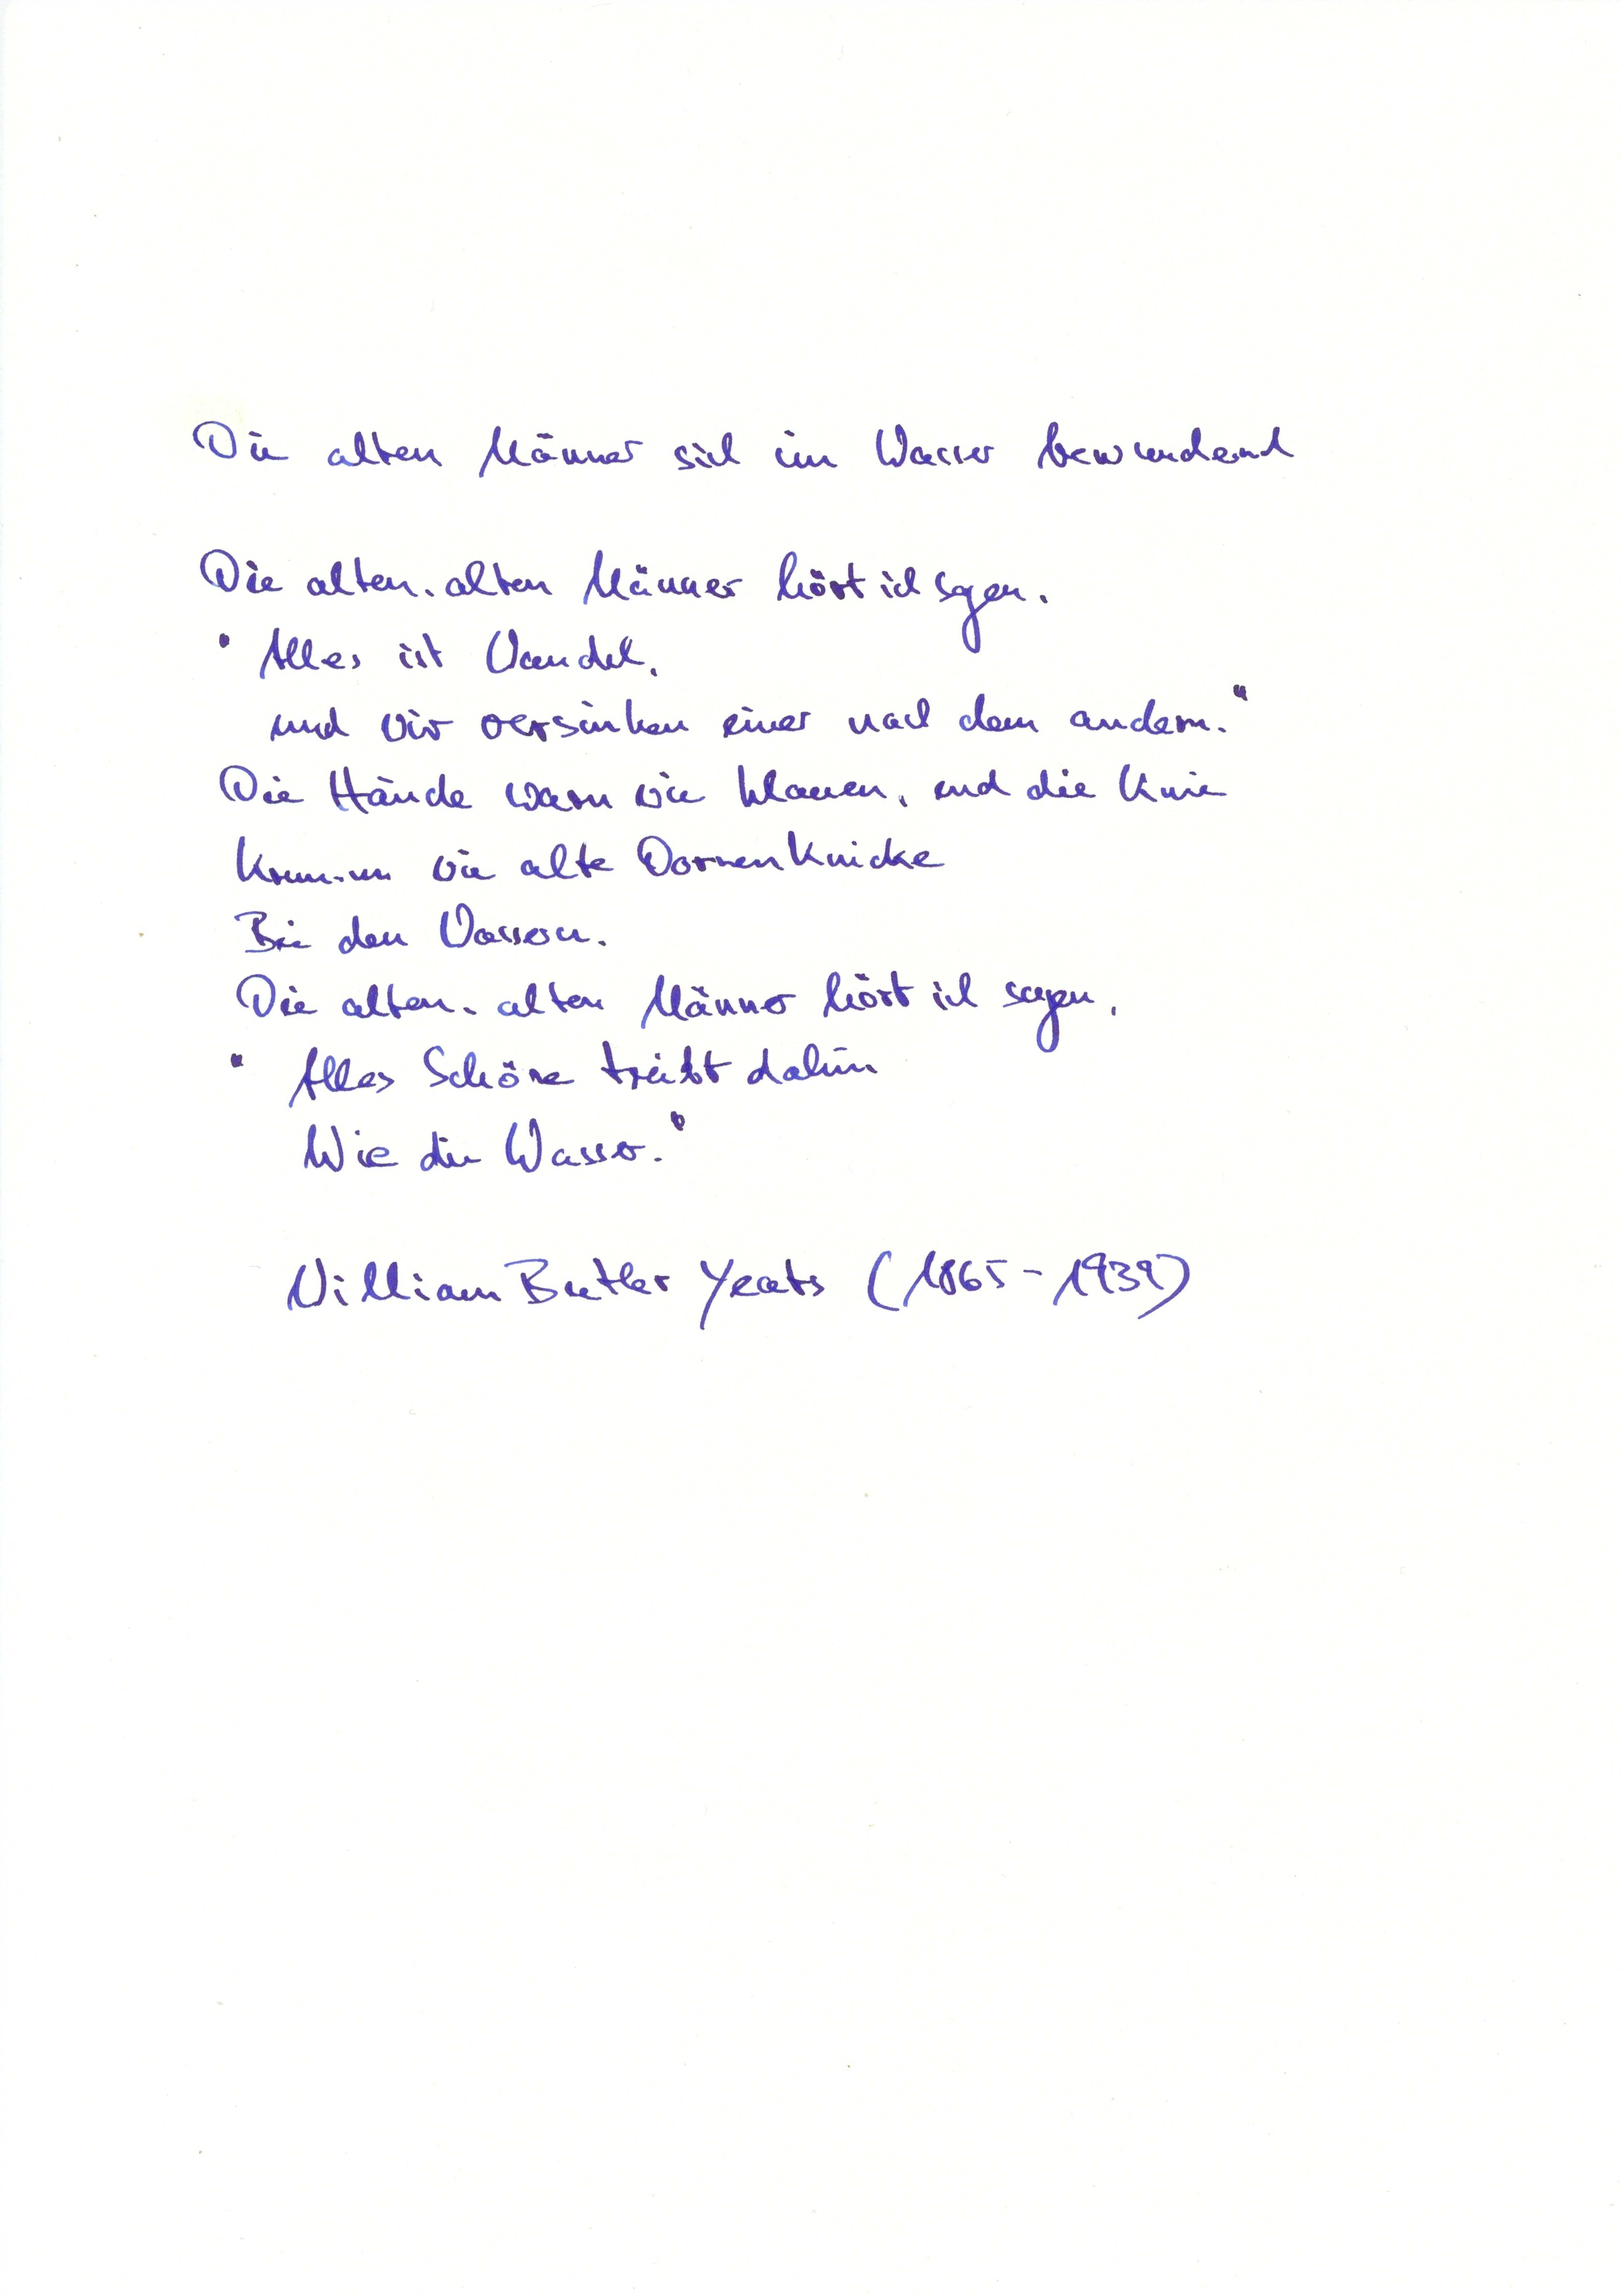 Die alten Männer sich im Wasser bewundernd
Die alten, alten Männer hört ich sagen.
"Alles ist Wandel,
und wir versinken einer nach dem andern."
Die Hände warn wie Klauen, und die Knie
Krumm wie alte Dornenknicke
Bei den Wassern.
Die alten, alten Männer hört ich sagen,
"Alles Schöne treibt dahin
Wie die Wasser."
William Butler Yeats (1865-1939)